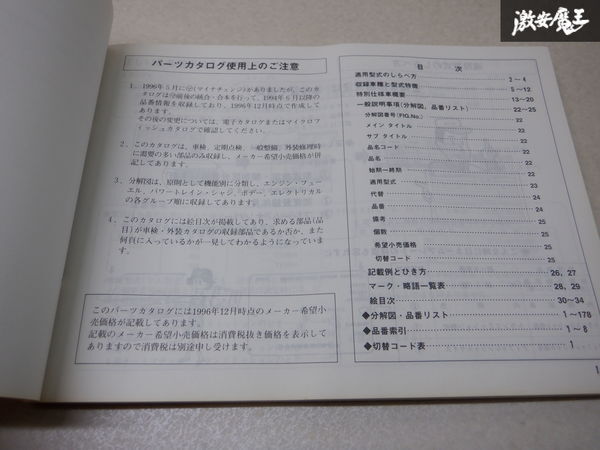 激安魔王
パーツカタログ使用上のご注意
1. 1996年5月に㋮(マイナチェンジ)がありましたが、このカ
タログは㋮前後の統合・合本を行って、1994年6月以降の
品番情報を収録しており、1996年12月時点で作成して
あります。
その後の変更については、電子カタログまたはマイクロフ
ィッシュカタログで確認してください。
2. このカタログは、車検、定期点検、一般整備、外装修理時
に需要の多い部品のみ収録し、メーカー希望小売価格が併
記してあります。
3. 分解図は、原則として機能別に分類し、エンジン・フュー
エル、パワートレイン・シャシ、ボデー、エレクトリカル
の各グループ順に収録してあります。
4. このカタログには絵目次が掲載してあり、求める部品(品
目)が車検・外装カタログの収録部品であるか否か、また
何頁に入っているかが一見してわかるようになっていま
す。
このパーツカタログには1996年12月時点のメーカー希望小
売価格が記載してあります。
記載のメーカー希望小売価格は消費税抜き価格を表示して
ありますので消費税は別途申し受けます。
目 次
適用型式のしらべ方 2〜4
収録車種と型式特徴 5〜12
特別仕様車概要 13〜20
一般説明事項(分解図、品番リスト) 22〜25
分解図番号(FIG.No.) 22
メイン タイトル 22
サブ タイトル 22
品名コード 22
品名 22
始期―終期 22
適用型式 23
代替 24
品番 24
備考 24
個数 25
希望小売価格 25
切替コード 25
記載例とひき方 26, 27
マーク・略語一覧表 28, 29
絵目次 30〜34
◆分解図・品番リスト 1〜178
◆品番索引 1〜8
◆切替コード表 1
1